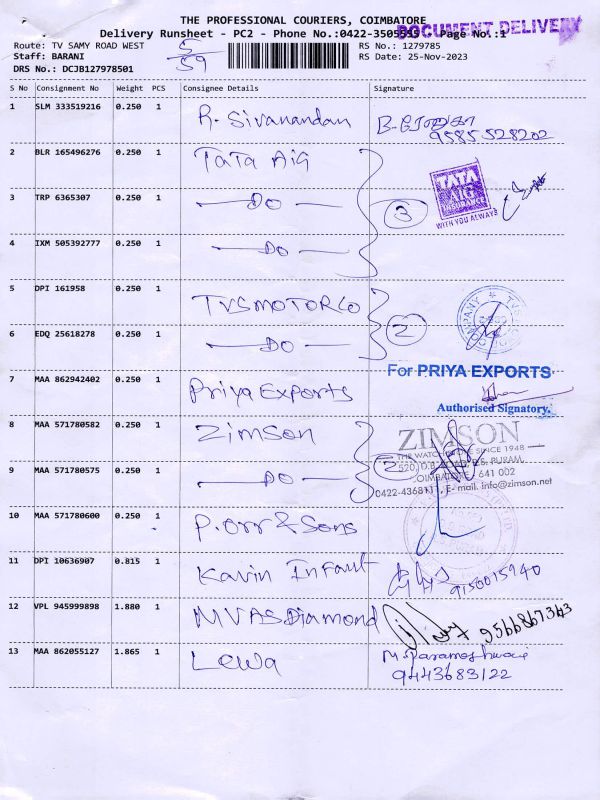 THE PROFESSIONAL COURIERS, COIMBATORE
Delivery Runsheet - PC2 - Phone No.:0422-3505555 Page No.:1
DOCUMENT DELIVERY
Route: TV SAMY ROAD WEST
Staff: BARANI
DRS No.: DCJB127978501
5/59
RS No.: 1279785
RS Date: 25-Nov-2023
S No Consignment No Weight PCS Consignee Details Signature
1 SLM 333519216 0.250 1 R. Sivanandan
9585528202
2 BLR 165496276 0.250 1 TaTa AiG
3 TRP 6365307 0.250 1 — DO —
3
TATA
AIG
INSURANCE
WITH YOU ALWAYS
4 IXM 505392777 0.250 1 — DO —
5 DPI 161958 0.250 1 TVS MOTOR Co
2
6 EDQ 25618278 0.250 1 — DO —
For PRIYA EXPORTS
7 MAA 862942402 0.250 1 Priya Exports
Authorised Signatory.
8 MAA 571780582 0.250 1 Zimson
ZIMSON
SINCE 1948
641 002
E- mail. info@zimson.net
9 MAA 571780575 0.250 1 — DO —
2
10 MAA 571780600 0.250 1 P. Orr & Sons
11 DPI 10636907 0.815 1 Kavin Infant
9150015940
12 VPL 945999898 1.880 1 MVAS Diamond
9566867343
13 MAA 862055127 1.865 1 Lewa
M. Parameshwari
9443683122